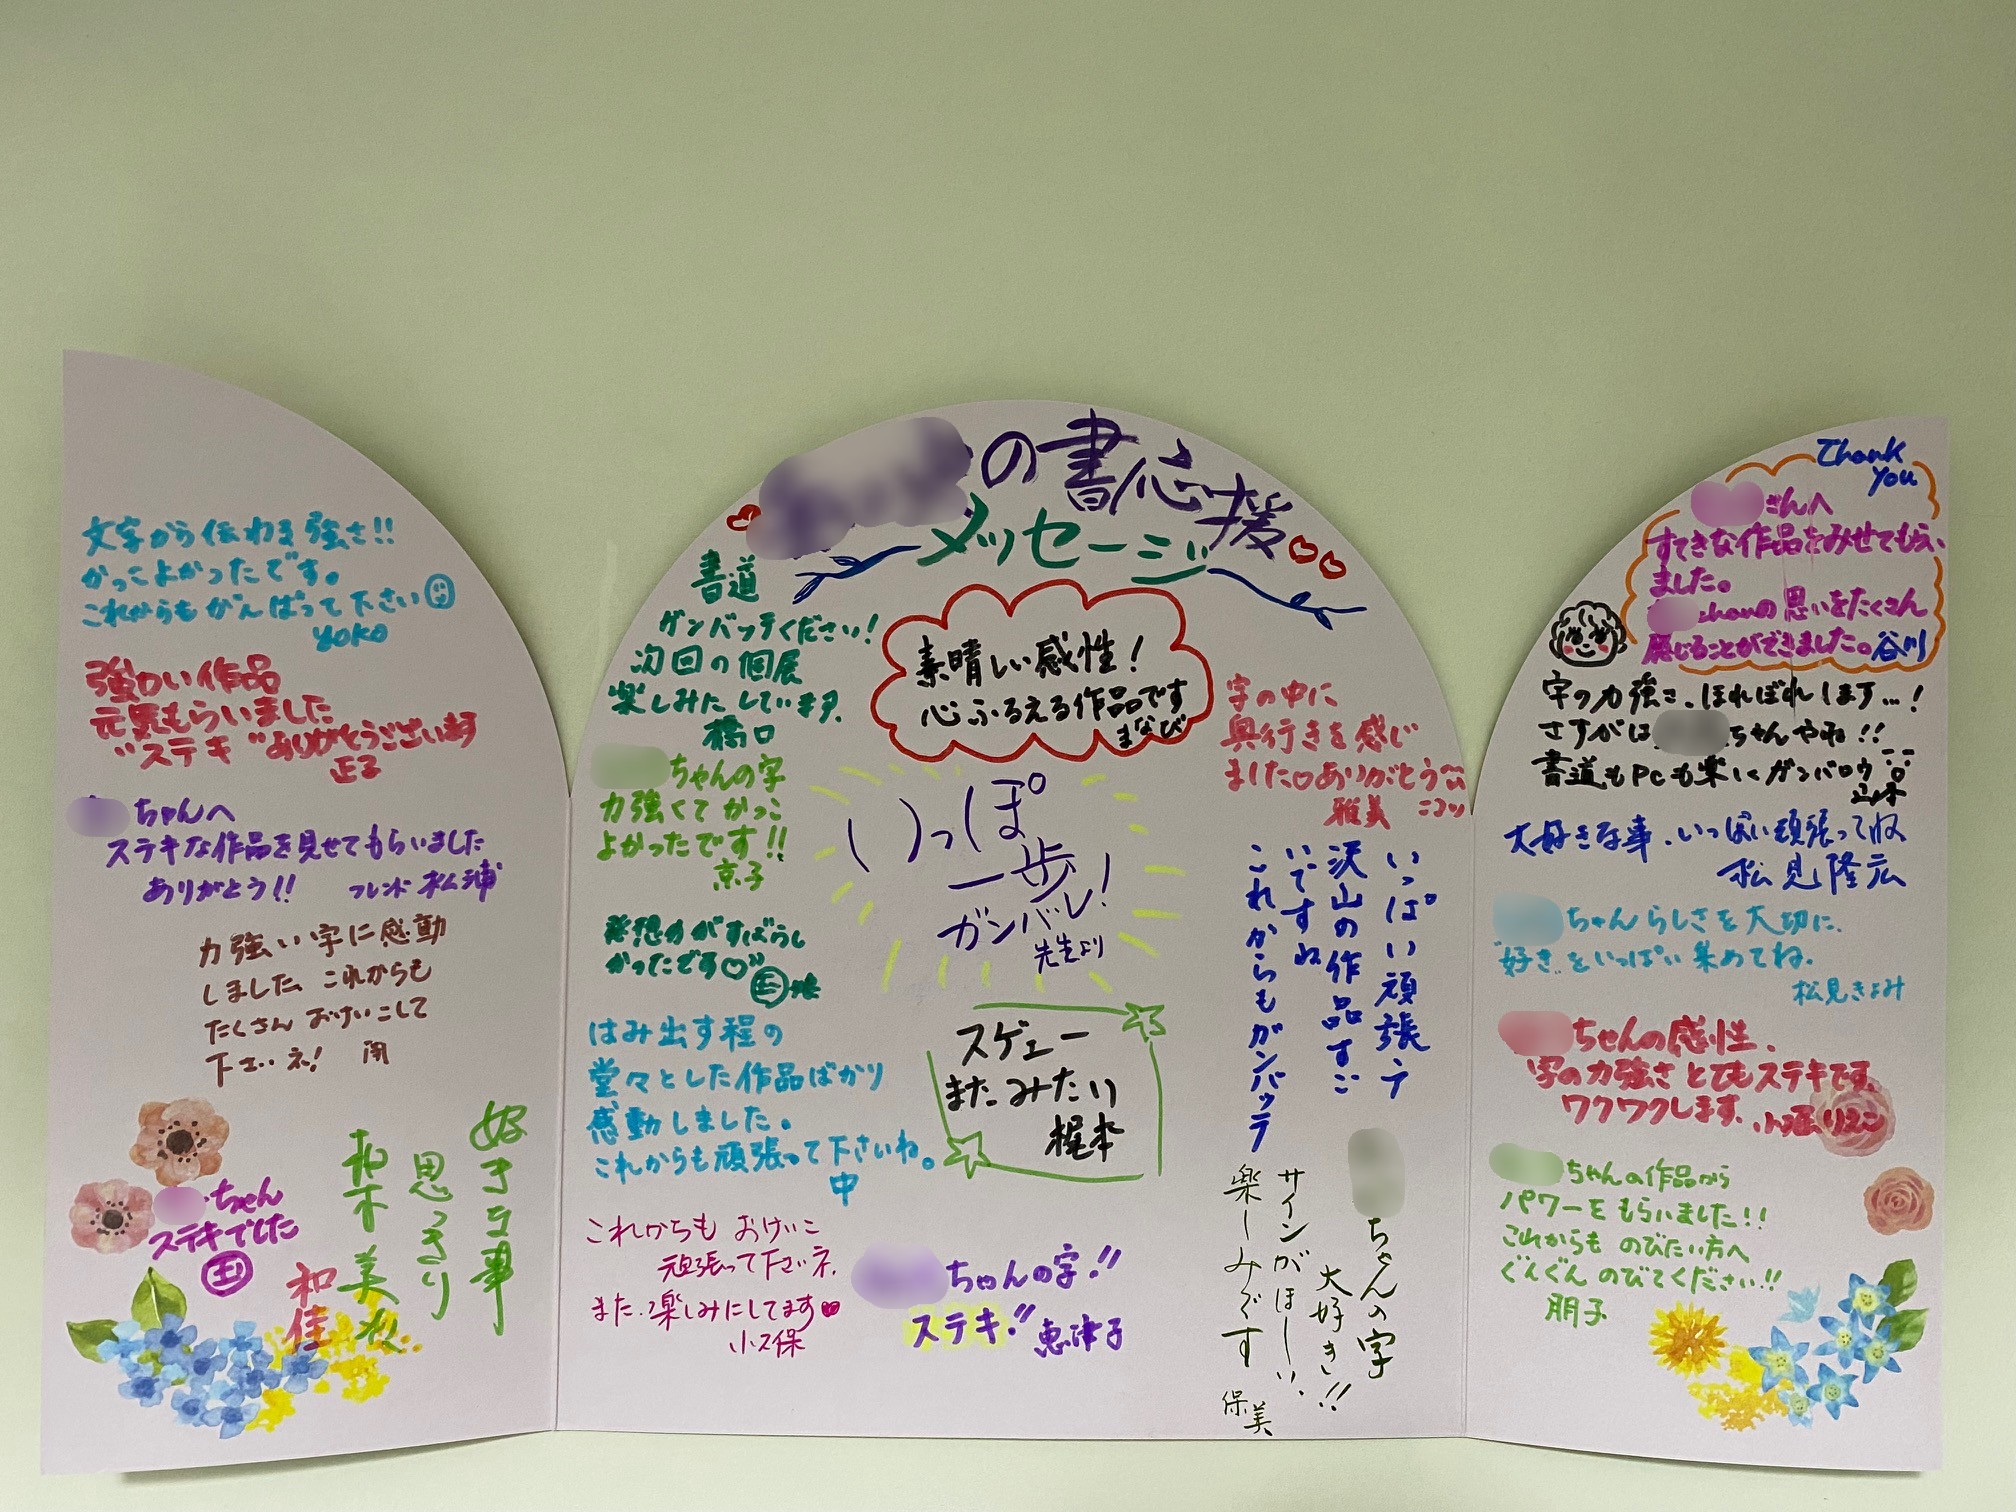 文字から伝わる強さ!!
かっこよかったです。
これからもがんばって下さい
YOKO
強わい作品
元気もらいました
"ステキ"ありがとうございます
正子
ちゃんへ
ステキな作品を見せてもらいました
ありがとう!! フレンド 松浦
力強い字に感動
しました、これからも
たくさん おけいこして
下さいネ!
好きな事
思っきり
和佳
ちゃん
ステキでした
玉
の書応援
メッセージ
書道
ガンバッテください!
次回の個展
楽しみたしています。
橋口
素晴しい感性!
心ふるえる作品です
まなび
ちゃんの字
力強くてかっこ
よかったです!!
京子
いっぽ
一歩
ガンバレ!
先生より
発想力がすばらし
かったです♡"
はみ出す程の
堂々とした作品ばかり
感動しました。
これからも頑張って下さいね。
中
スゲェー
またみたい
梶本
これからも おけいこ
頑張って下さいネ、
また、楽しみにしてます
小久保
ちゃんの字!!
ステキ!! 恵津子
字の中に
奥行きを感じ
ました。ありがとう
雅美 ニコッ
いっぱい頑張って
沢山の作品すご
いですね
これからもガンバッテ
ちゃんの字
大好き!!
サインがほしい、
楽しみです
保美
Thank
you
さんへ
すてきな作品をみせてもらい
ました。
chanの思いをたくさん
感じることができました。谷川
字の力強さ、ほれぼれします…!
さすがは ちゃんやね!!
書道もPCも楽しくガンバロウ
大好きな事、いっぱい頑張ってね
松見隆広
ちゃんらしさを大切に、
"好き"をいっぱい集めてね。
松見きよみ
ちゃんの感性、
字の力強さとてもステキです、
ワクワクします、小堀りえこ
ちゃんの作品から
パワーをもらいました!!
これからも のびたい方へ
ぐんぐん のびてください!!
朋子